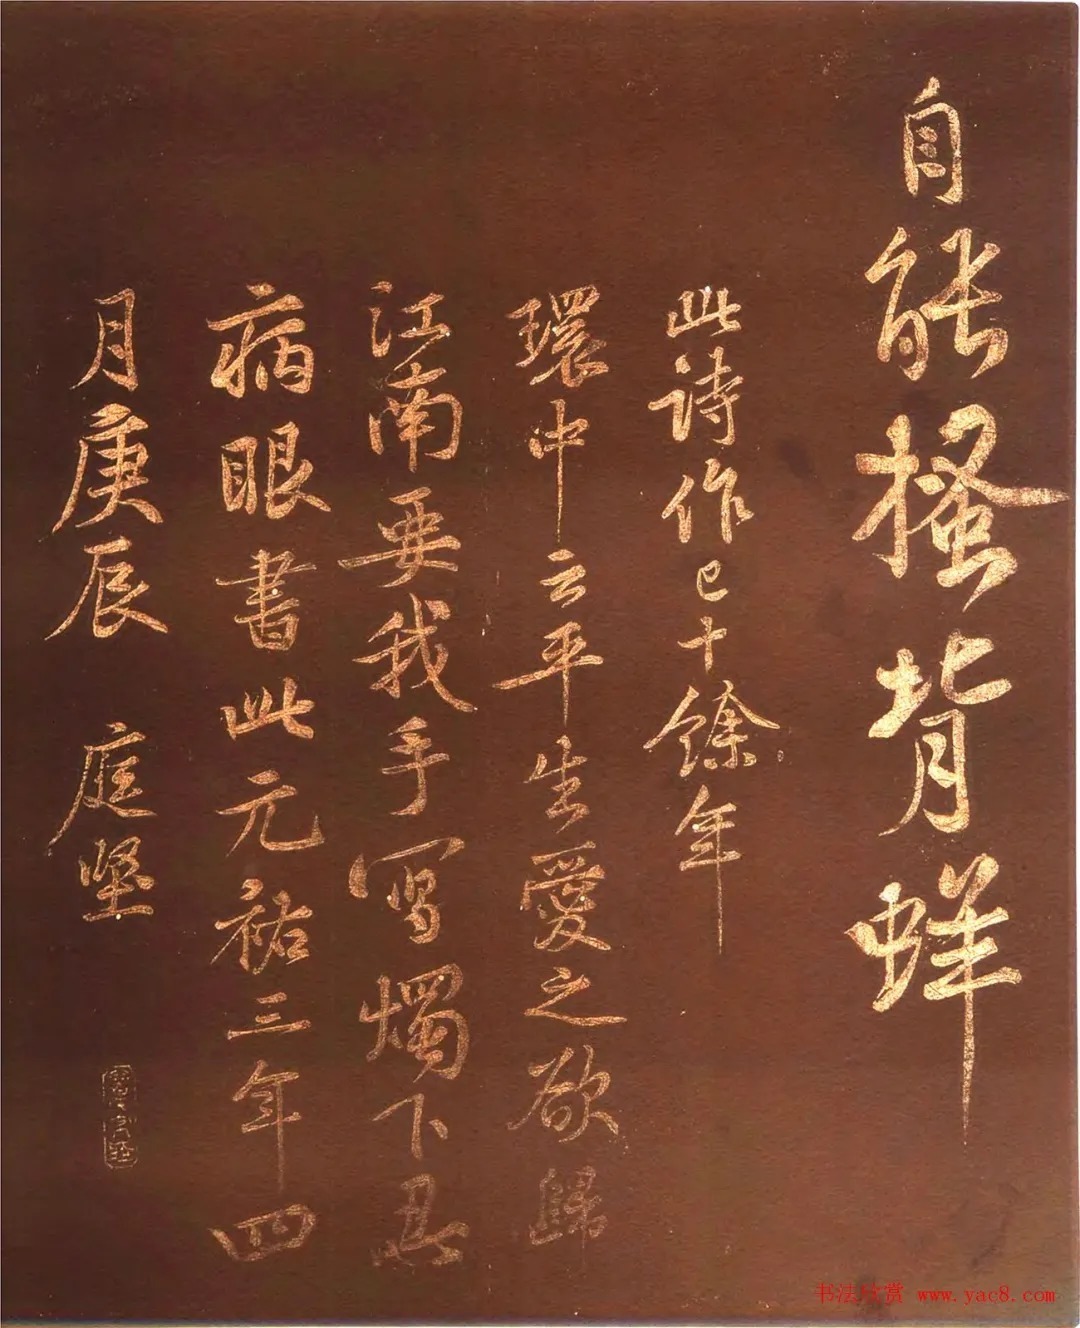 自能搔背蛘
此诗作已十馀年
環中云平生愛之欲歸
江南要我手写燭下忍
病眼書此元祐三年四
月庚辰 庭坚
书法欣赏 www.yac8.com